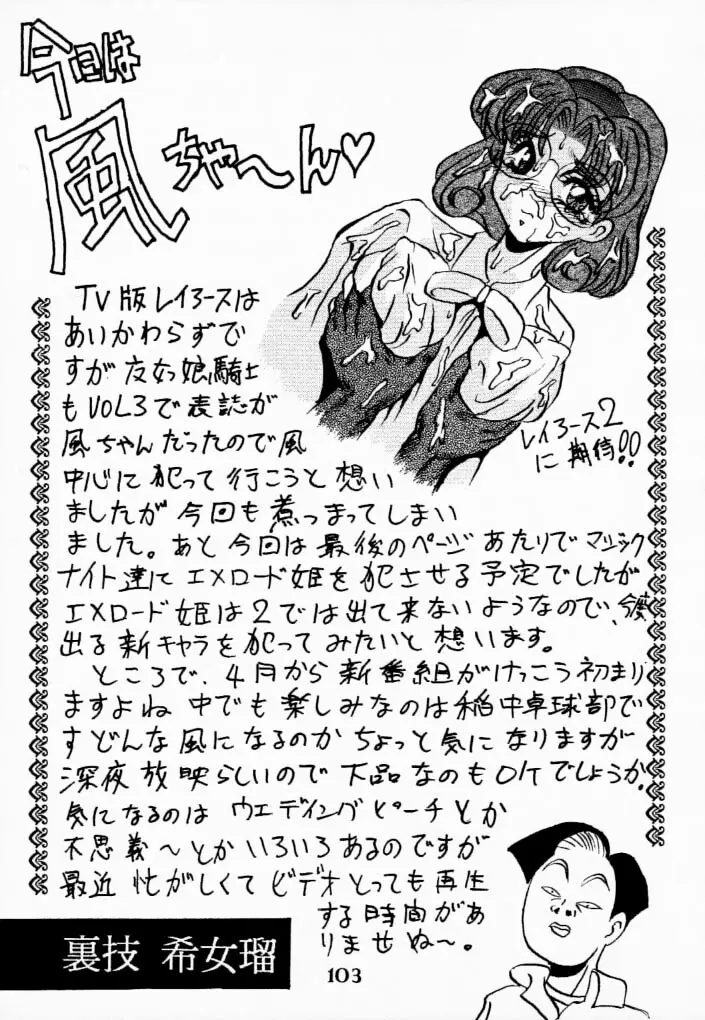 今回は
風
ちゃ〜ん♡
TV版レイアースは
あいかわらずで
すが 友女っ娘騎士
もVOL3で表誌が
風ちゃんだったので風
中心に犯って行こうと想い
ましたが今回も煮つまってしまい
ました。あと今回は最後のページあたりでマジック
ナイト達にエメロード姫を犯させる予定でしたが
エメロード姫は2では出て来ないようなので、今度
出る新キャラを犯ってみたいと想います。
ところで、4月から新番組がけっこう初まり
ますよね 中でも楽しみなのは稲中卓球部で
すどんな風になるのかちょっと気になりますが
深夜放映らしいので下品なのもOKでしょうか。
気になるのは ウエディングピーチとか
不思義〜とかいろいろあるのですが
最近忙がしくてビデオとっても再生
する時間があ
りませぬ〜。
レイアース2
に期待!!
裏技 希女瑠
103